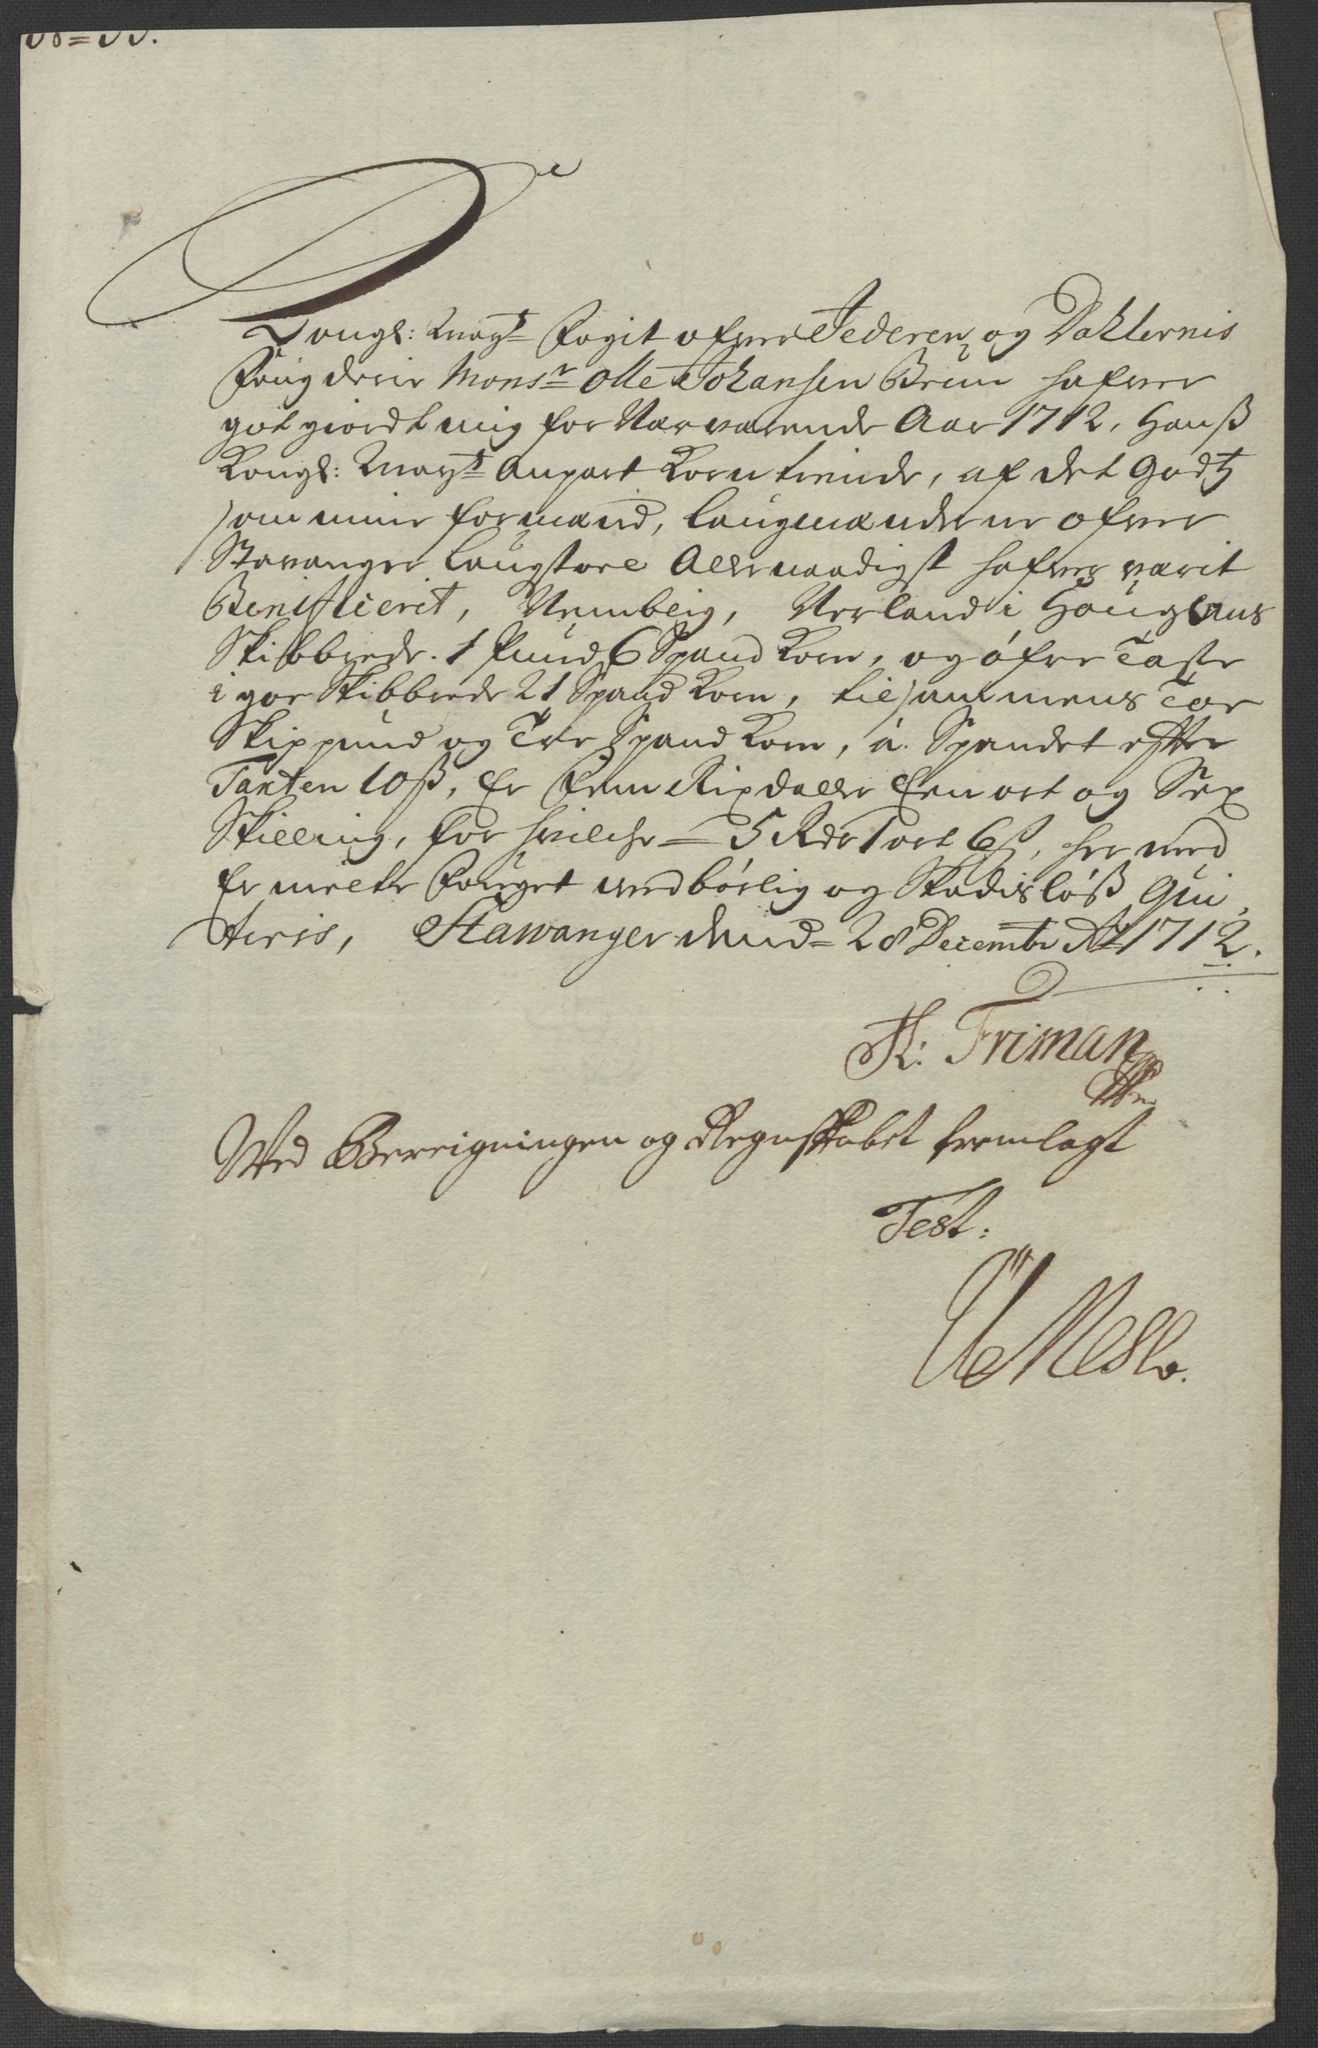 Kongl: Mayts Fogit ofver Jederen og Dahlernis
Fougderie Monsr Olle Johansen Brun hafver
got giordt mig for Nærværende Aar 1712, Hanß
Kongl: Mayts Anpart Korn tiende, af det Godtz
som mine formænd, laugmændene ofver
Stavanger Laugstoel Allernaadigst hafver værit
Benificerit, Nemblig, Verland i Hougl
Skibbrede. 1 Pund 6 Spand Korn, og öfre Taste
i goe Skibbrede 21 Spand Korn, tilsammens Toe
Skippund og Tre Spand Korn, a. Spandet efter
Taxten 10 ß, Er Fem Rixdaller Een ort og Sex
Skilling, for hvilche = 5 Rdr 1 ort 6 ß, her med
Ermelte Fouget vedbörlig og Skadislöß Qui,
teris, Stawanger dend = 28 Decembr Ao 1712.
H. Friman
Wed Bereigningen og Regnskabet fremlagt
Test: